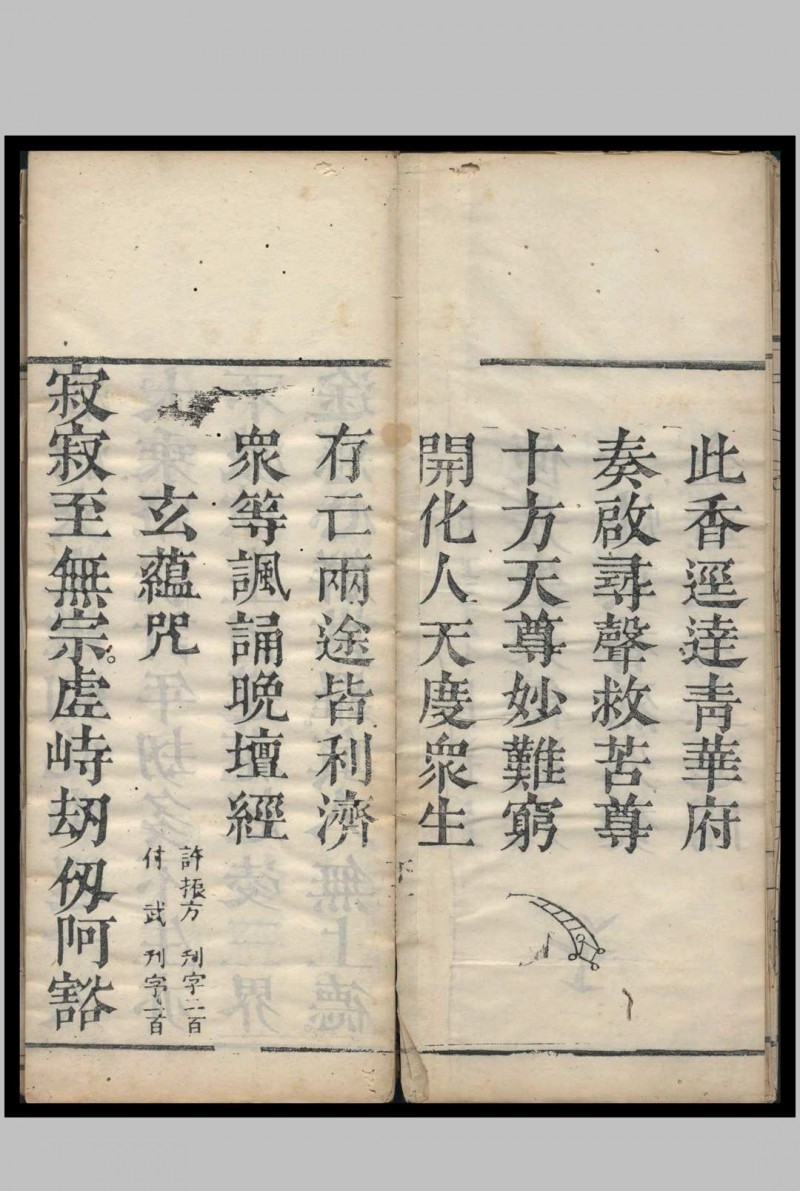 此香逕達靑華府
奏啟尋聲救苦尊
十方天尊妙難窮
開化人天度衆生
存亡兩途皆利濟
衆等諷誦晩壇經
玄蘊咒
許振方 刋字二百
付武 刋字一百
寂寂至無宗。虛峙刼仭阿豁